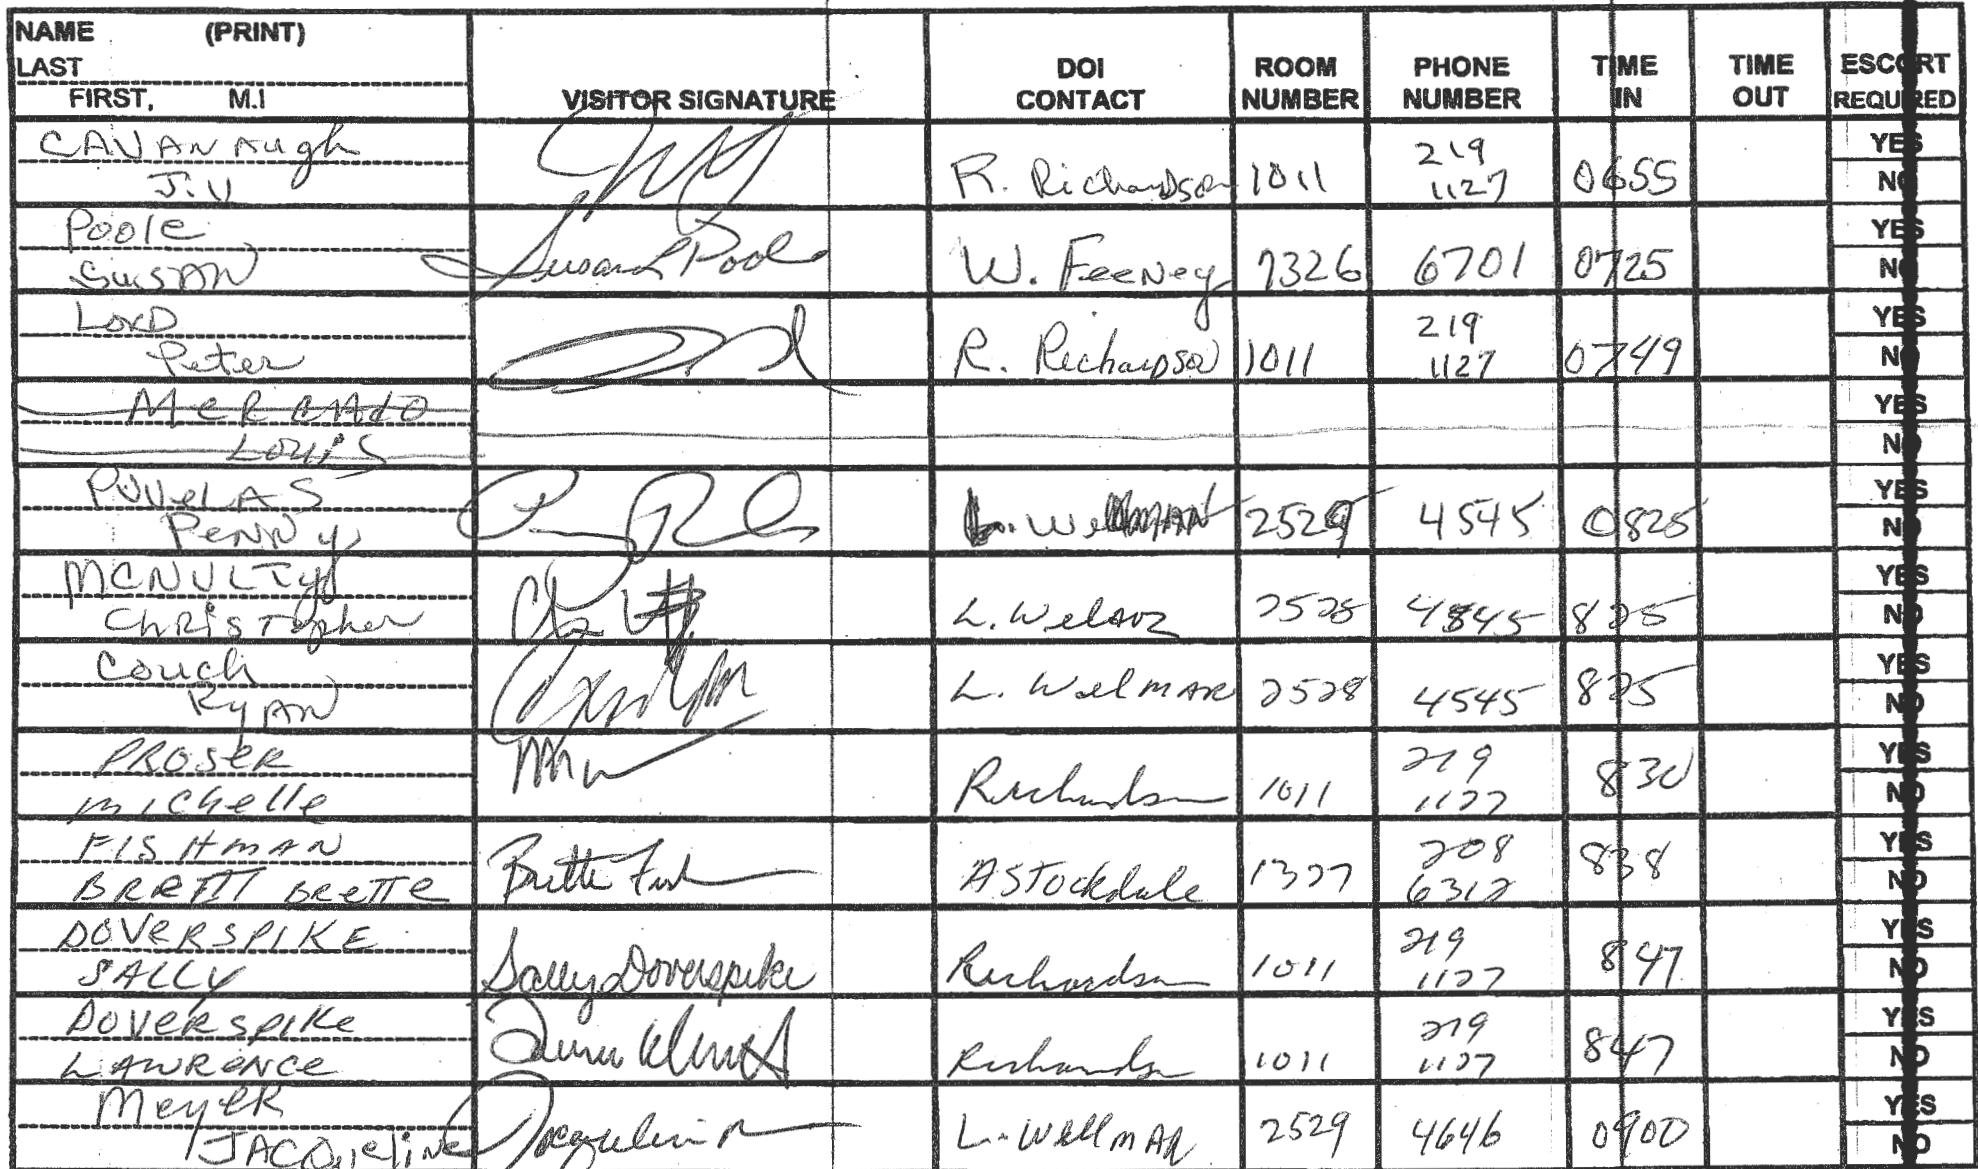 NAME (PRINT)
LAST
FIRST, M.I
VISITOR SIGNATURE
DOI CONTACT
ROOM NUMBER
PHONE NUMBER
TIME IN
TIME OUT
ESCORT REQUIRED
CAVANAugh
J.V
R. Richardson 1011 219 1127 0655
YES
NO
Poole
SUSAN
Susan Poole
W. FeeNey 7326 6701 0725
YES
NO
LORD
Peter
R. Richardson 1011 219 1127 0749
YES
NO
MERCAdO
LOUIS
YES
NO
PUVELAS
PENNy
L. WellMAN 2529 4545 0825
YES
NO
MCNULTY
ChRisTopher
L. 2528 4545 825
YES
NO
Couch
RYAN
L. WelMAR 2528 4545 825
YES
NO
PROSER
michelle
Richardson 1011 219 1127 830
YES
NO
FISHMAN
BRETT BRETTE
Brette Fish
A Stockdale 1327 208 6312 838
YES
NO
DOVERSPIKE
SALLY
Sally Doverspike
Richardson 1011 219 1127 847
YES
NO
DOVERSPIKE
LAWRENCE
Richardson 1011 219 1127 847
YES
NO
MeyeR
JACQueliNe
Jacqueline
L. WellMAN 2529 4646 0900
YES
NO